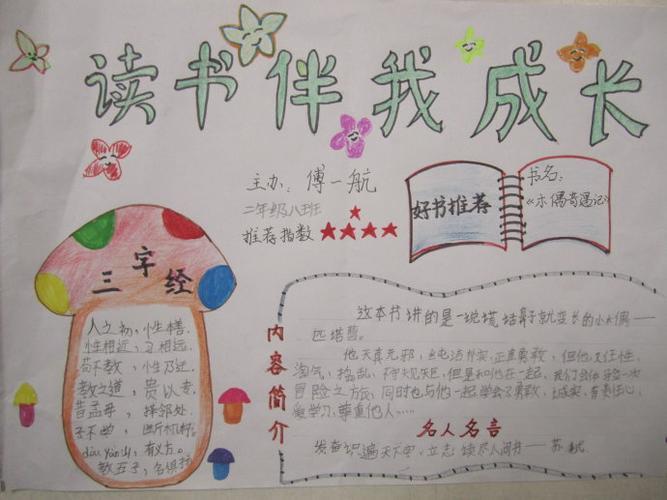 读书伴我成长
主办：傅一航
二年级八班
推荐指数
好书推荐
书名：
《木偶奇遇记》
三字经
人之初，性本善。
性相近，习相远。
苟不教，性乃迁。
教之道，贵以专。
昔孟母，择邻处。
子不学，断机杼。
dòu yān山，有义方。
教五子，名俱扬
内容简介
这本书讲的是一说谎话鼻子就变长的小木偶——
匹塔曹。
他天真无邪，纯洁朴实，正直勇敢，但他又任性，
淘气，捣乱，不守规矩，但是和他在一起，我们会体验一次
冒险之旅，同时也与他一起学会了勇敢，诚实，有责任心，
爱学习，尊重他人……
名人名言
发奋识遍天下字，立志读尽人间书——苏轼